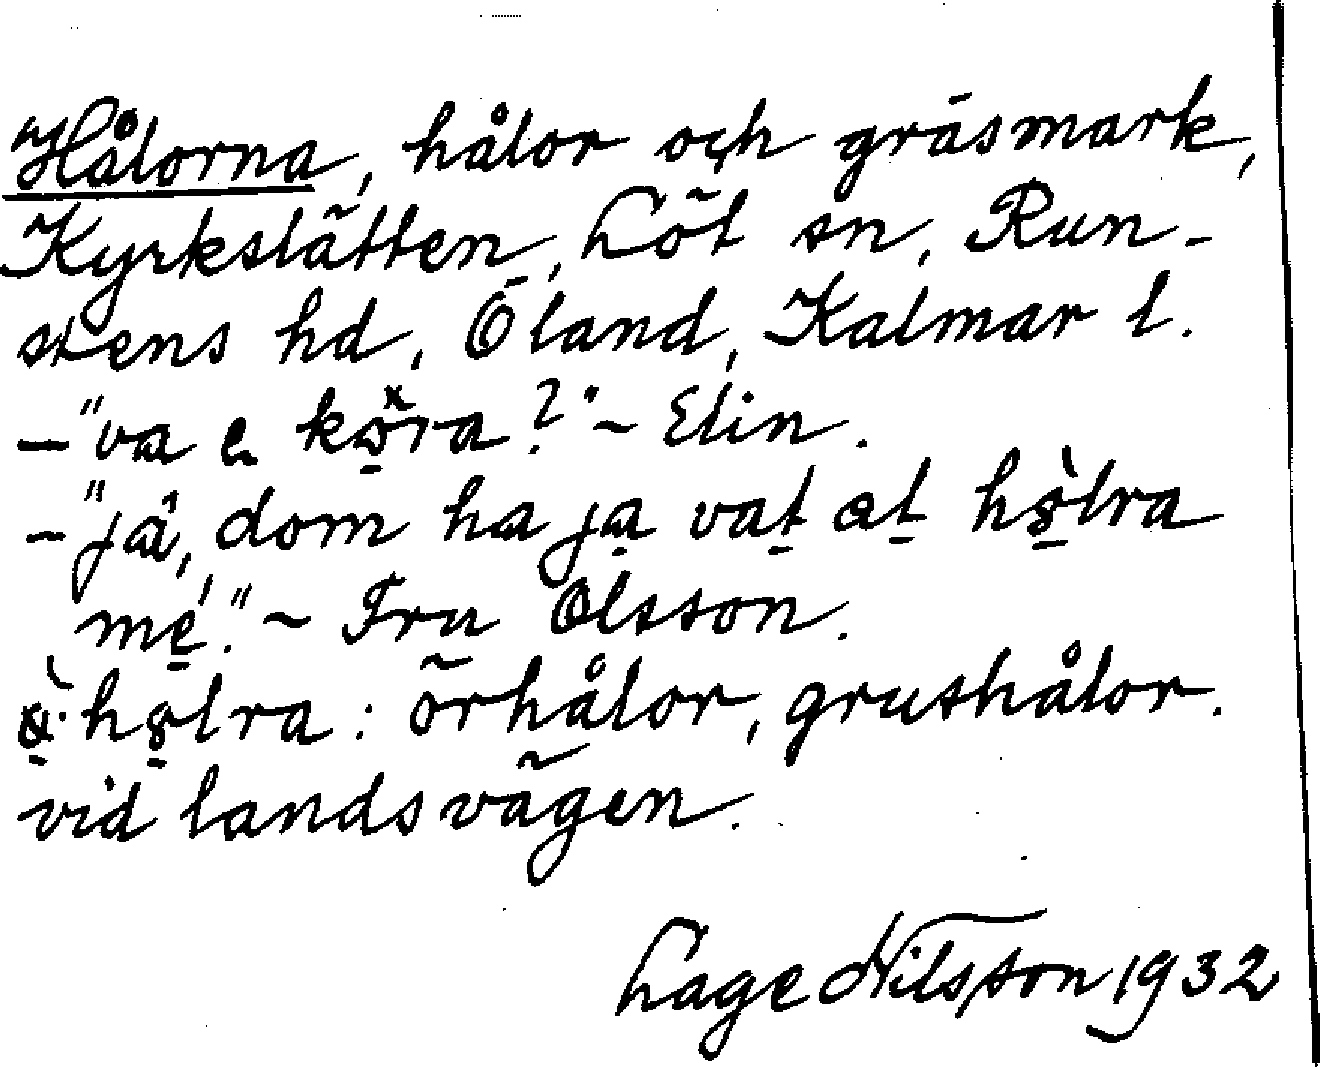 Hålorna, hålor och gräsmark,
Kyrkslätten, Löt sn, Run-
stens hd, Öland, Kalmar l.
– "va e köra?" – Elin.
– "jâ, dom ha ja vat at hòlra
mé." – Fru Olsson.
hòlra: örhålor, grushålor.
vid landsvägen.
Lage Nilsson 1932